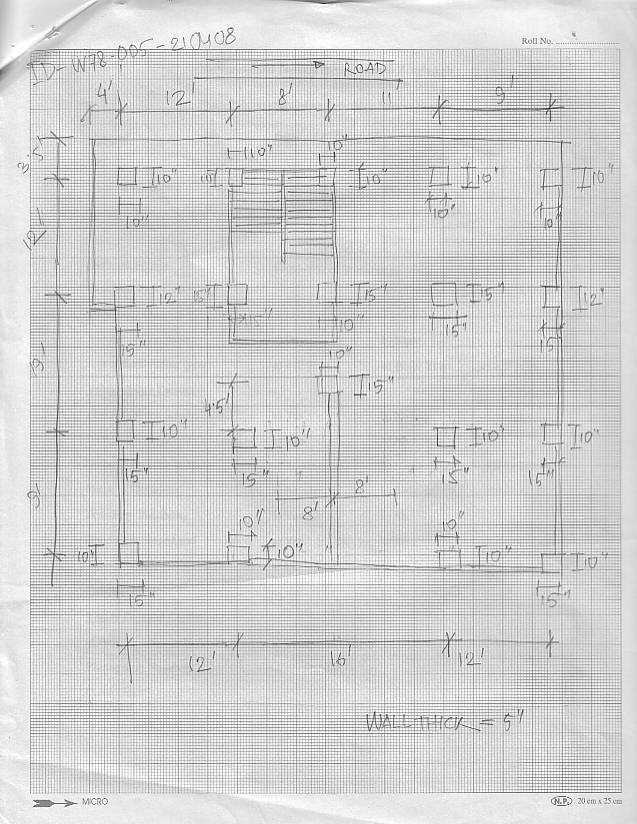 Roll No.
ID-W78-005-210408
ROAD
4' 12' 8' 11' 9'
3.5'
10" 10"
10" 10" 10" 10" 10"
10" 10" 10"
12'
12" 15" 15" 15" 12"
15" 15" 10" 15" 15
10"
13' 15"
4.5'
10" 10" 10" 10"
15" 15" 15" 15"
9' 8' 8'
10" 10"
10" 10" 10" 10"
15" 15"
12' 16' 12'
WALL THICK = 5"
MICRO N.P. 20 cm x 25 cm